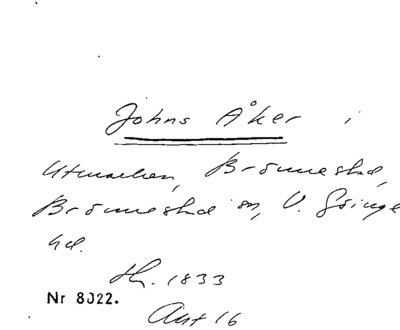 Johns Åker i
Utmarken, Brönnestad,
Brönnestad sn, V. Göinge
hd.
th. 1833
Nr 8022.
Akt 16